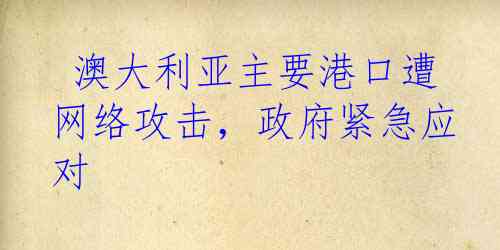 澳大利亚主要港口遭
网络攻击，政府紧急应
对